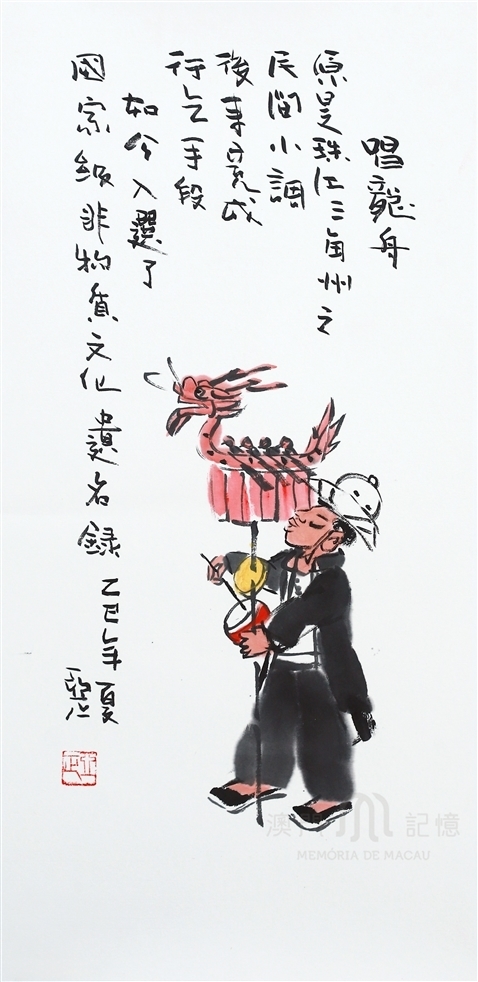 唱龍舟
原是珠江三角州之
民間小調
後來竟成
行乞手段
如今入選了
國家級非物質文化遺名錄
乙巳年夏
亞正
澳門記憶
MEMÓRIA DE MACAU